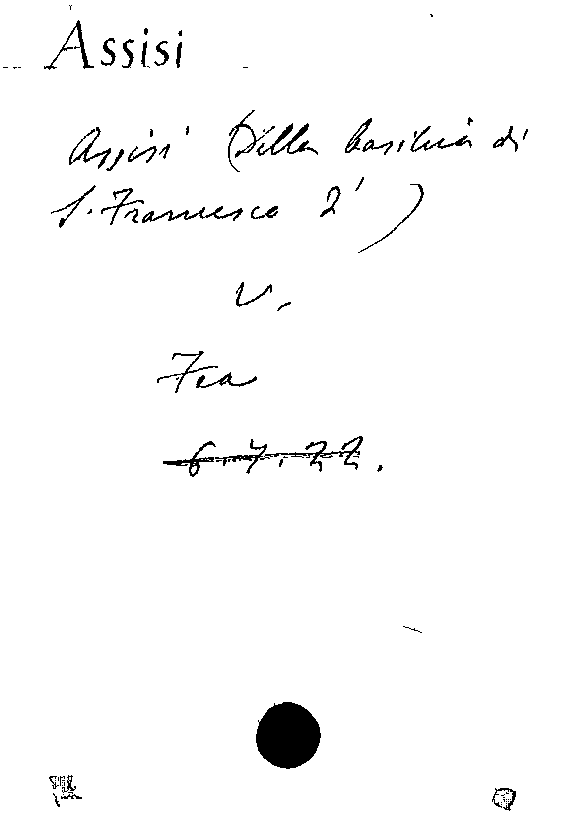 Assisi
Assisi (Della basilica di
S. Francesco d')
V.
Fea
6.7.22.